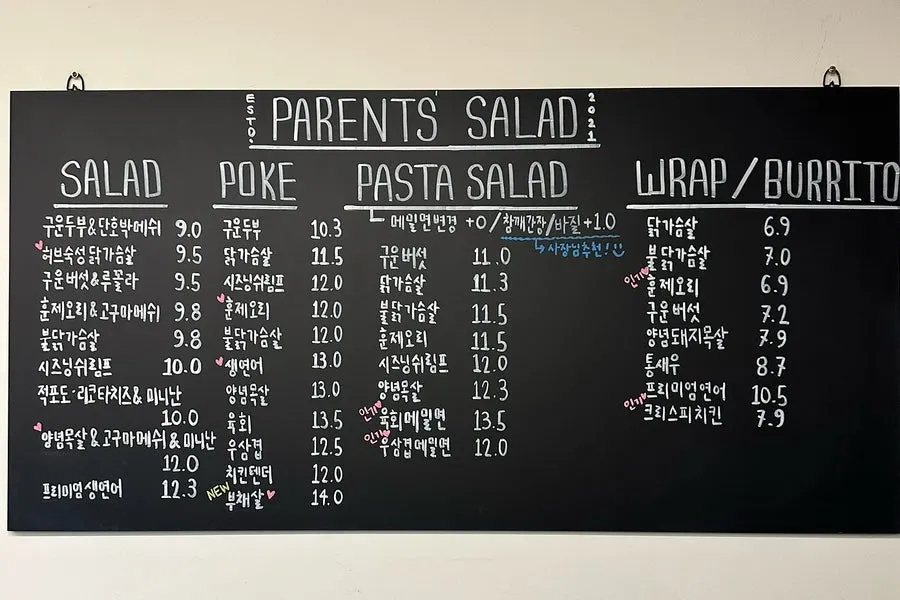 ESTD. PARENTS' SALAD 2021
SALAD
구운두부&단호박메쉬 9.0
허브숙성 닭가슴살 9.5
구운버섯&루꼴라 9.5
훈제오리&고구마메쉬 9.8
불닭가슴살 9.8
시즈닝쉬림프 10.0
적포도·리코타치즈& 미니난
10.0
양념목살&고구마메쉬&미니난
12.0
프리미엄생연어 12.3
POKE
구운두부 10.3
닭가슴살 11.5
시즈닝쉬림프 12.0
훈제오리 12.0
불닭가슴살 12.0
생연어 13.0
양념목살 13.0
육회 13.5
우삼겹 12.5
치킨텐더 12.0
NEW 부채살 14.0
PASTA SALAD
메밀면변경 +0/참깨간장/바질+1.0
사장님추천!
구운버섯 11.0
닭가슴살 11.3
불닭가슴살 11.5
훈제오리 11.5
시즈닝쉬림프 12.0
양념목살 12.3
인기 육회메밀면 13.5
인기 우삼겹메밀면 12.0
WRAP/BURRITO
닭가슴살 6.9
불닭가슴살 7.0
인기 훈제오리 6.9
구운버섯 7.2
양념돼지목살 7.9
통새우 8.7
프리미엄연어 10.5
인기 크리스피치킨 7.9